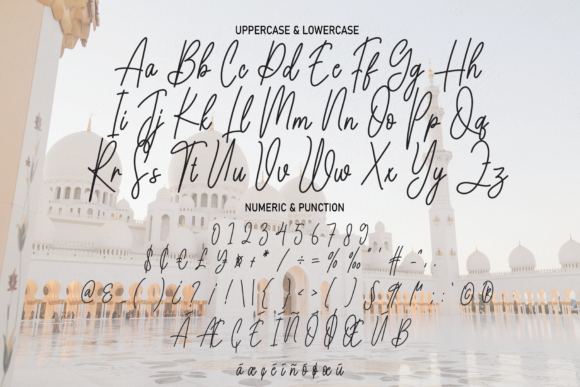 UPPERCASE & LOWERCASE
Aa Bb Cc Dd Ee Ff Gg Hh
Ii Jj Kk Ll Mm Nn Oo Pp Qq
Rr Ss Tt Uu Vv Ww Xx Yy Zz
NUMERIC & PUNCTION
0 1 2 3 4 5 6 7 8 9
$ ¢ € £ ¥ ¤ + * / ÷ = % ‰ " ' # ~ ^ , .
@ & _ ( ) ¿ ? ¡ ! \ | ¦ { } < > [ ] § ¶ µ .. : ' © ®
Ä Æ Ç É Í Ñ Ó Ø Œ Ú ß
á æ ç é í ñ ó ø œ ú